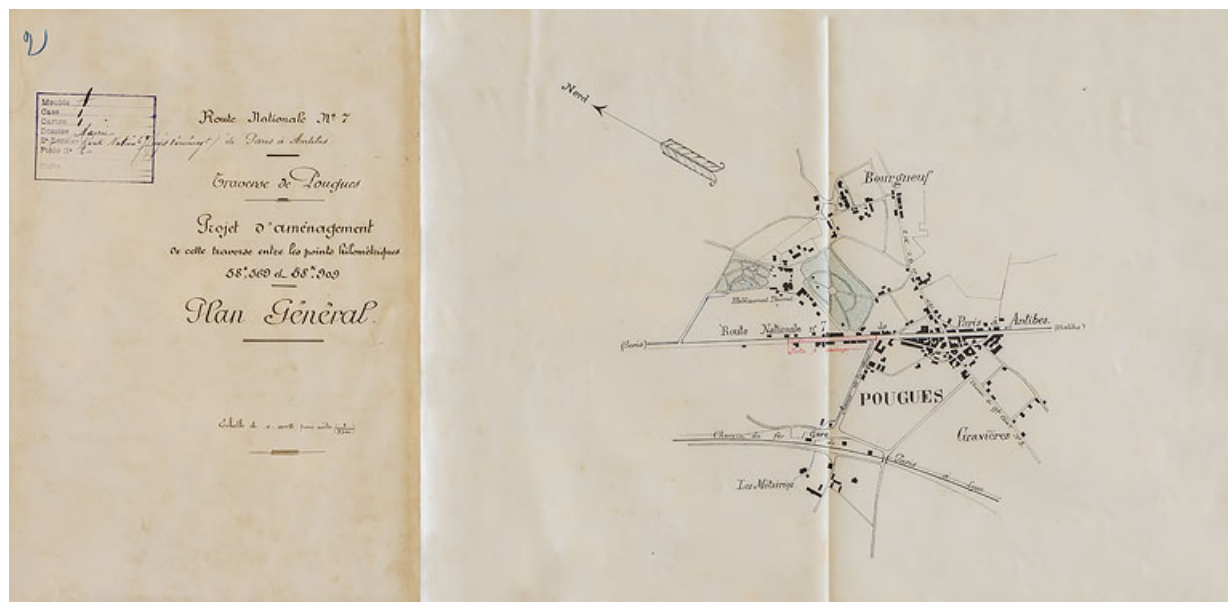 2
Meuble 1
Case 1
Carton 1
Dossier Maprie
Pièce n° 2
Route Nationale N° 7
de Paris à Antibes
Traverse de Pougues.
Projet d'aménagement
de cette traverse entre les points kilométriques
58k,569 et 58k,909
Plan Général.
Echelle de
Nord
Bourgneuf
Etablissement Thermal
Route Nationale n° 7 de Paris à Antibes.
(Paris)
(Antibes)
POUGUES
Gravières
Chemin de fer
Gare
Paris à Lyon
Les Métairies